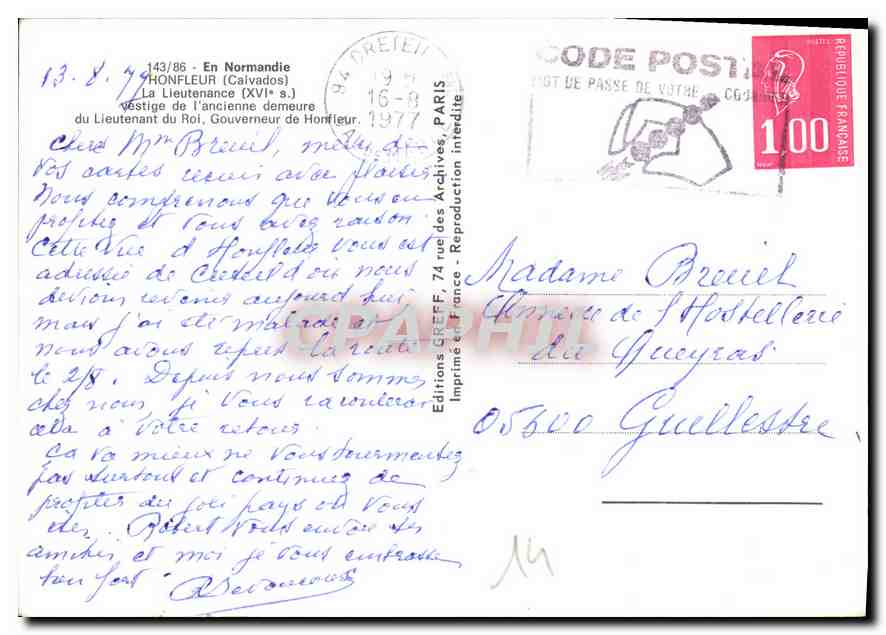 143/86 - En Normandie
HONFLEUR (Calvados)
La Lieutenance (XVIe s.)
vestige de l'ancienne demeure
du Lieutenant du Roi, Gouverneur de Honfleur.
13.8.77
Chère Mme Breuil, merci de
vos cartes reçues avec plaisir
Nous comprenons que vous en
profitez et vous avez raison.
Cette vue d'Honfleur vous est
adressée de Creteil d'où nous
devions revenir aujourd'hui
mais j'ai été malade et
nous avons repris la route
le 2/8. Depuis nous sommes
chez nous, je vous raconterai
cela à votre retour.
Ça va mieux ne vous tourmentez
pas surtout et continuez de
profiter du joli pays où vous
êtes. Robert vous envoie ses
amitiés et moi je vous embrasse
bien fort.
Editions GREFF, 74 rue des Archives, PARIS
Imprimé en France - Reproduction interdite
94 CRETEIL
19 H
16-8
1977
CODE POSTAL
MOT DE PASSE DE VOTRE COURRIER
POSTES
REPUBLIQUE FRANÇAISE
1,00
Madame Breuil
Annexe de l'Hostellerie
du Queyras
05600 Guillestre
14
CPAPHIL